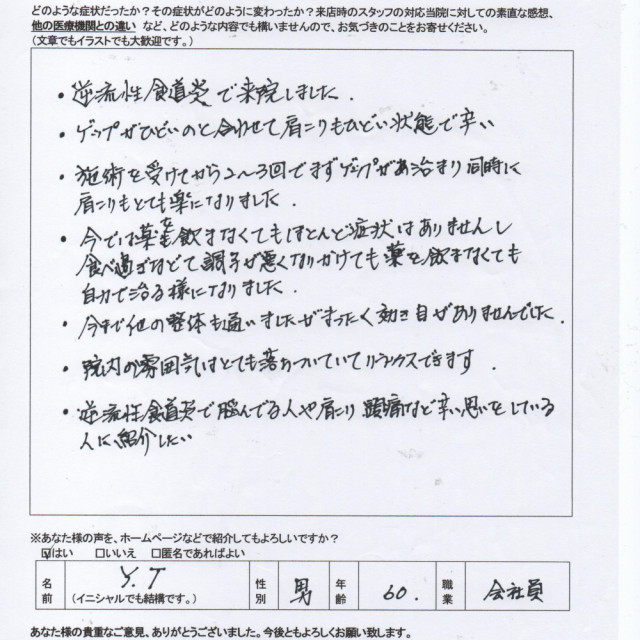 どのような症状だったか？その症状がどのように変わったか？来店時のスタッフの対応当院に対しての素直な感想、
他の医療機関との違い など、どのような内容でも構いませんので、お気づきのことをお寄せください。
（文章でもイラストでも大歓迎です。）
・逆流性食道炎で来院しました．
・ゲップがひどいのと合わせて肩こりもひどい状態で辛い
・施術を受けてから2〜3回でまずゲップがあ治まり同時に
肩こりもとても楽になりました．
・今では薬を飲まなくてもほとんど症状はありませんし
食べ過ぎなどで調子が悪くなりかけても薬を飲まなくても
自力で治る様になりました．
・今まで他の整体も通いましたがまったく効き目がありませんでした．
・院内の雰囲気はとても落ちついていてリラックスできます．
・逆流性食道炎で悩んでる人や肩こり 頭痛など辛い思いをしている
人に紹介したい
※あなた様の声を、ホームページなどで紹介してもよろしいですか？
☑はい □いいえ □匿名であればよい
名前 Y.T （イニシャルでも結構です。） 性別 男 年齢 60． 職業 会社員
あなた様の貴重なご意見、ありがとうございました。今後ともよろしくお願い致します。